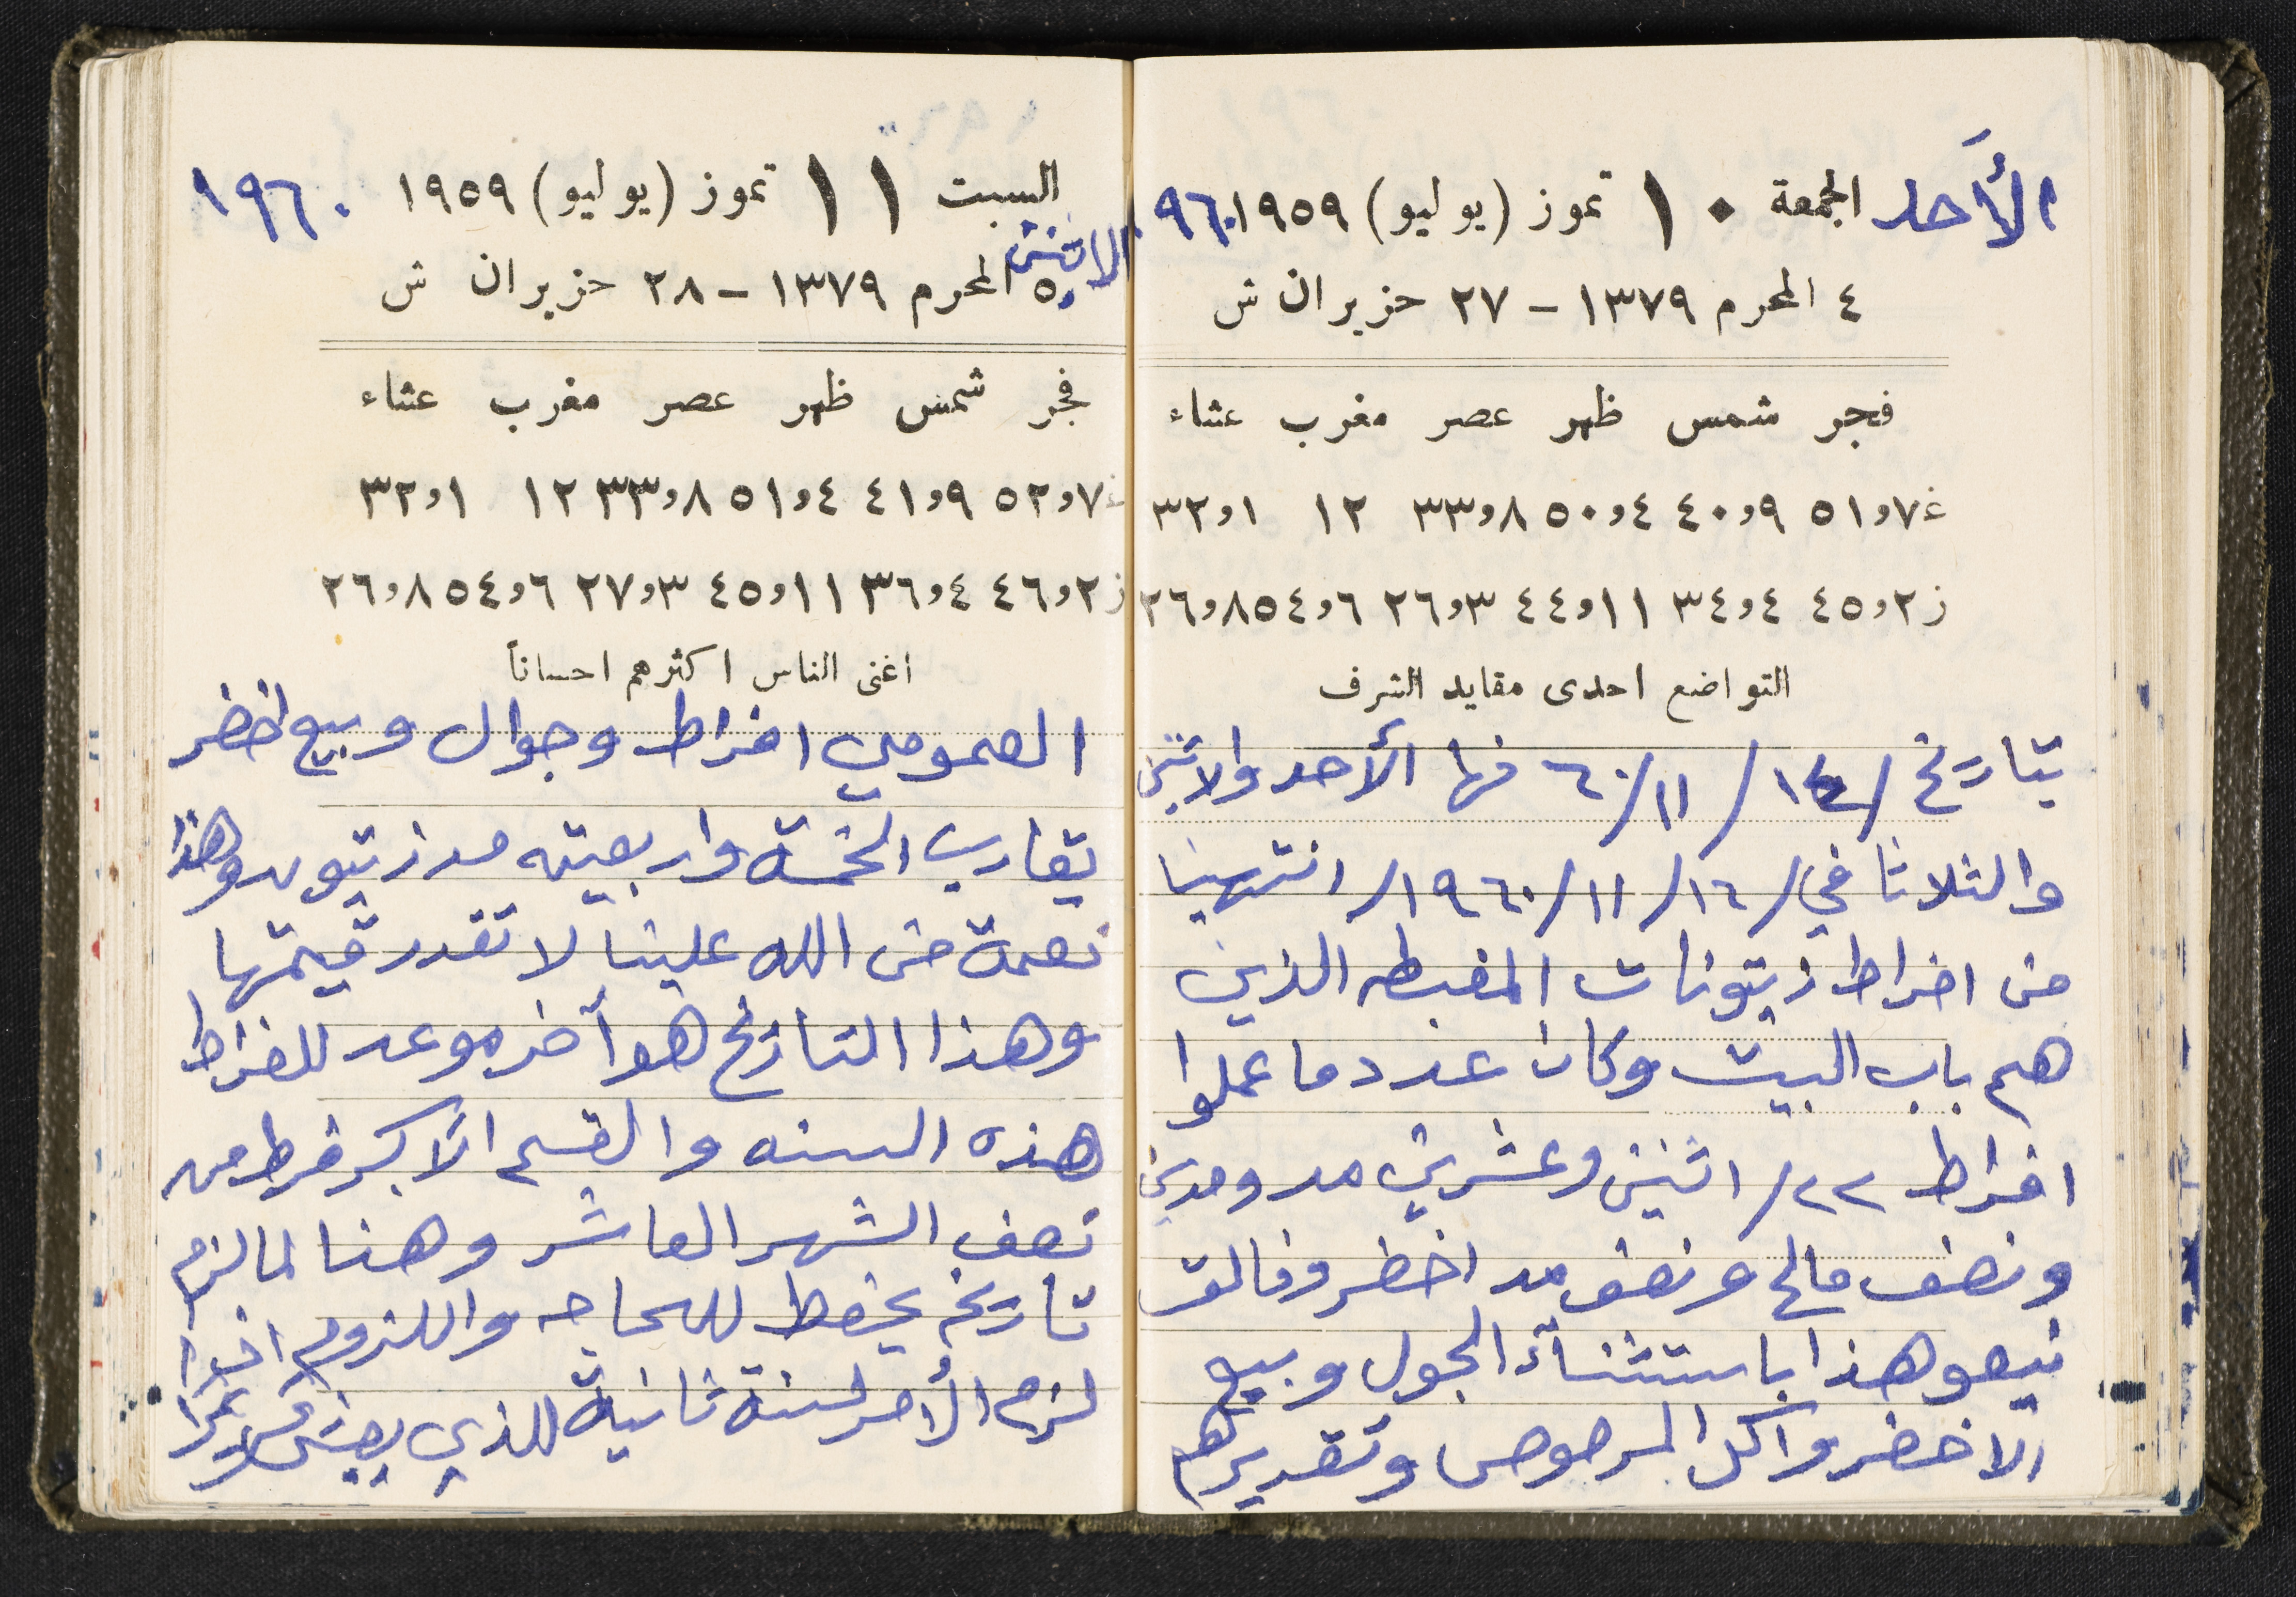 الأحد الجمعة ١٠ تموز (يوليو) ١٩٥٩ ٩٦٠
٤ المحرم ١٣٧٩ - ٢٧ حزيران ش
فجر شمس ظهر عصر مغرب عشاء
غ ٧و٥١ ٩و٤٠ ٤و٥٠ ٨و٣٣ ١٢ ١و٣٢
ز ٢و٤٥ ٤و٣٤ ١١و٤٤ ٣و٢٦ ٦و٥٤ ٨و٢٦
التواضع احدى مقايد الشرف
بتاريخ /١٤/ ١١/ ٦٠ نها الأحد والاثنين
والثلاثا في/ ١٦/ ١١/ ١٩٦٠/ انتهينا
من افراط زيتونات المغبطه الذين
هم باب البيت وكان عدد ما عملوا
افراط ٢٢/ اثنين وعشرين مد ومدين
ونصف مالح ونصف مد اخضر وفالق
نيعو وهذا باستثناء الجول وبيع
الاخضر واكل المرصوص وتقديرهم
السبت ١١ تموز (يوليو) ١٩٥٩ ١٩٦٠
الاثنين
٥ المحرم ١٣٧٩ - ٢٨ حزيران ش
فجر شمس ظهر عصر مغرب عشاء
غ ٧و٥٢ ٩و٤١ ٤و٥١ ٨و٣٣ ١٢ ١و٣٢
ز ٢و٤٦ ٤و٣٦ ١١و٤٥ ٣و٢٧ ٦و٥٤ ٨و٢٦
اغنى الناس اكثرهم احساناً
العمومي افراط وجوال وبيع اخضر
يقارب الخمسة واربعين مد زيتون وهذا
نعمة من الله علينا لا تقدر قيمتها
وهذا التاريخ هو آخر موعد للفراط
هذه السنه والقسم الأكبر فرط من
نصف الشهر العاشر وهنا لما لزم
تاريخ يحفظ للحاجه واللزوم اذا
لزم الأمر لسنة ثانية للذي يعيش